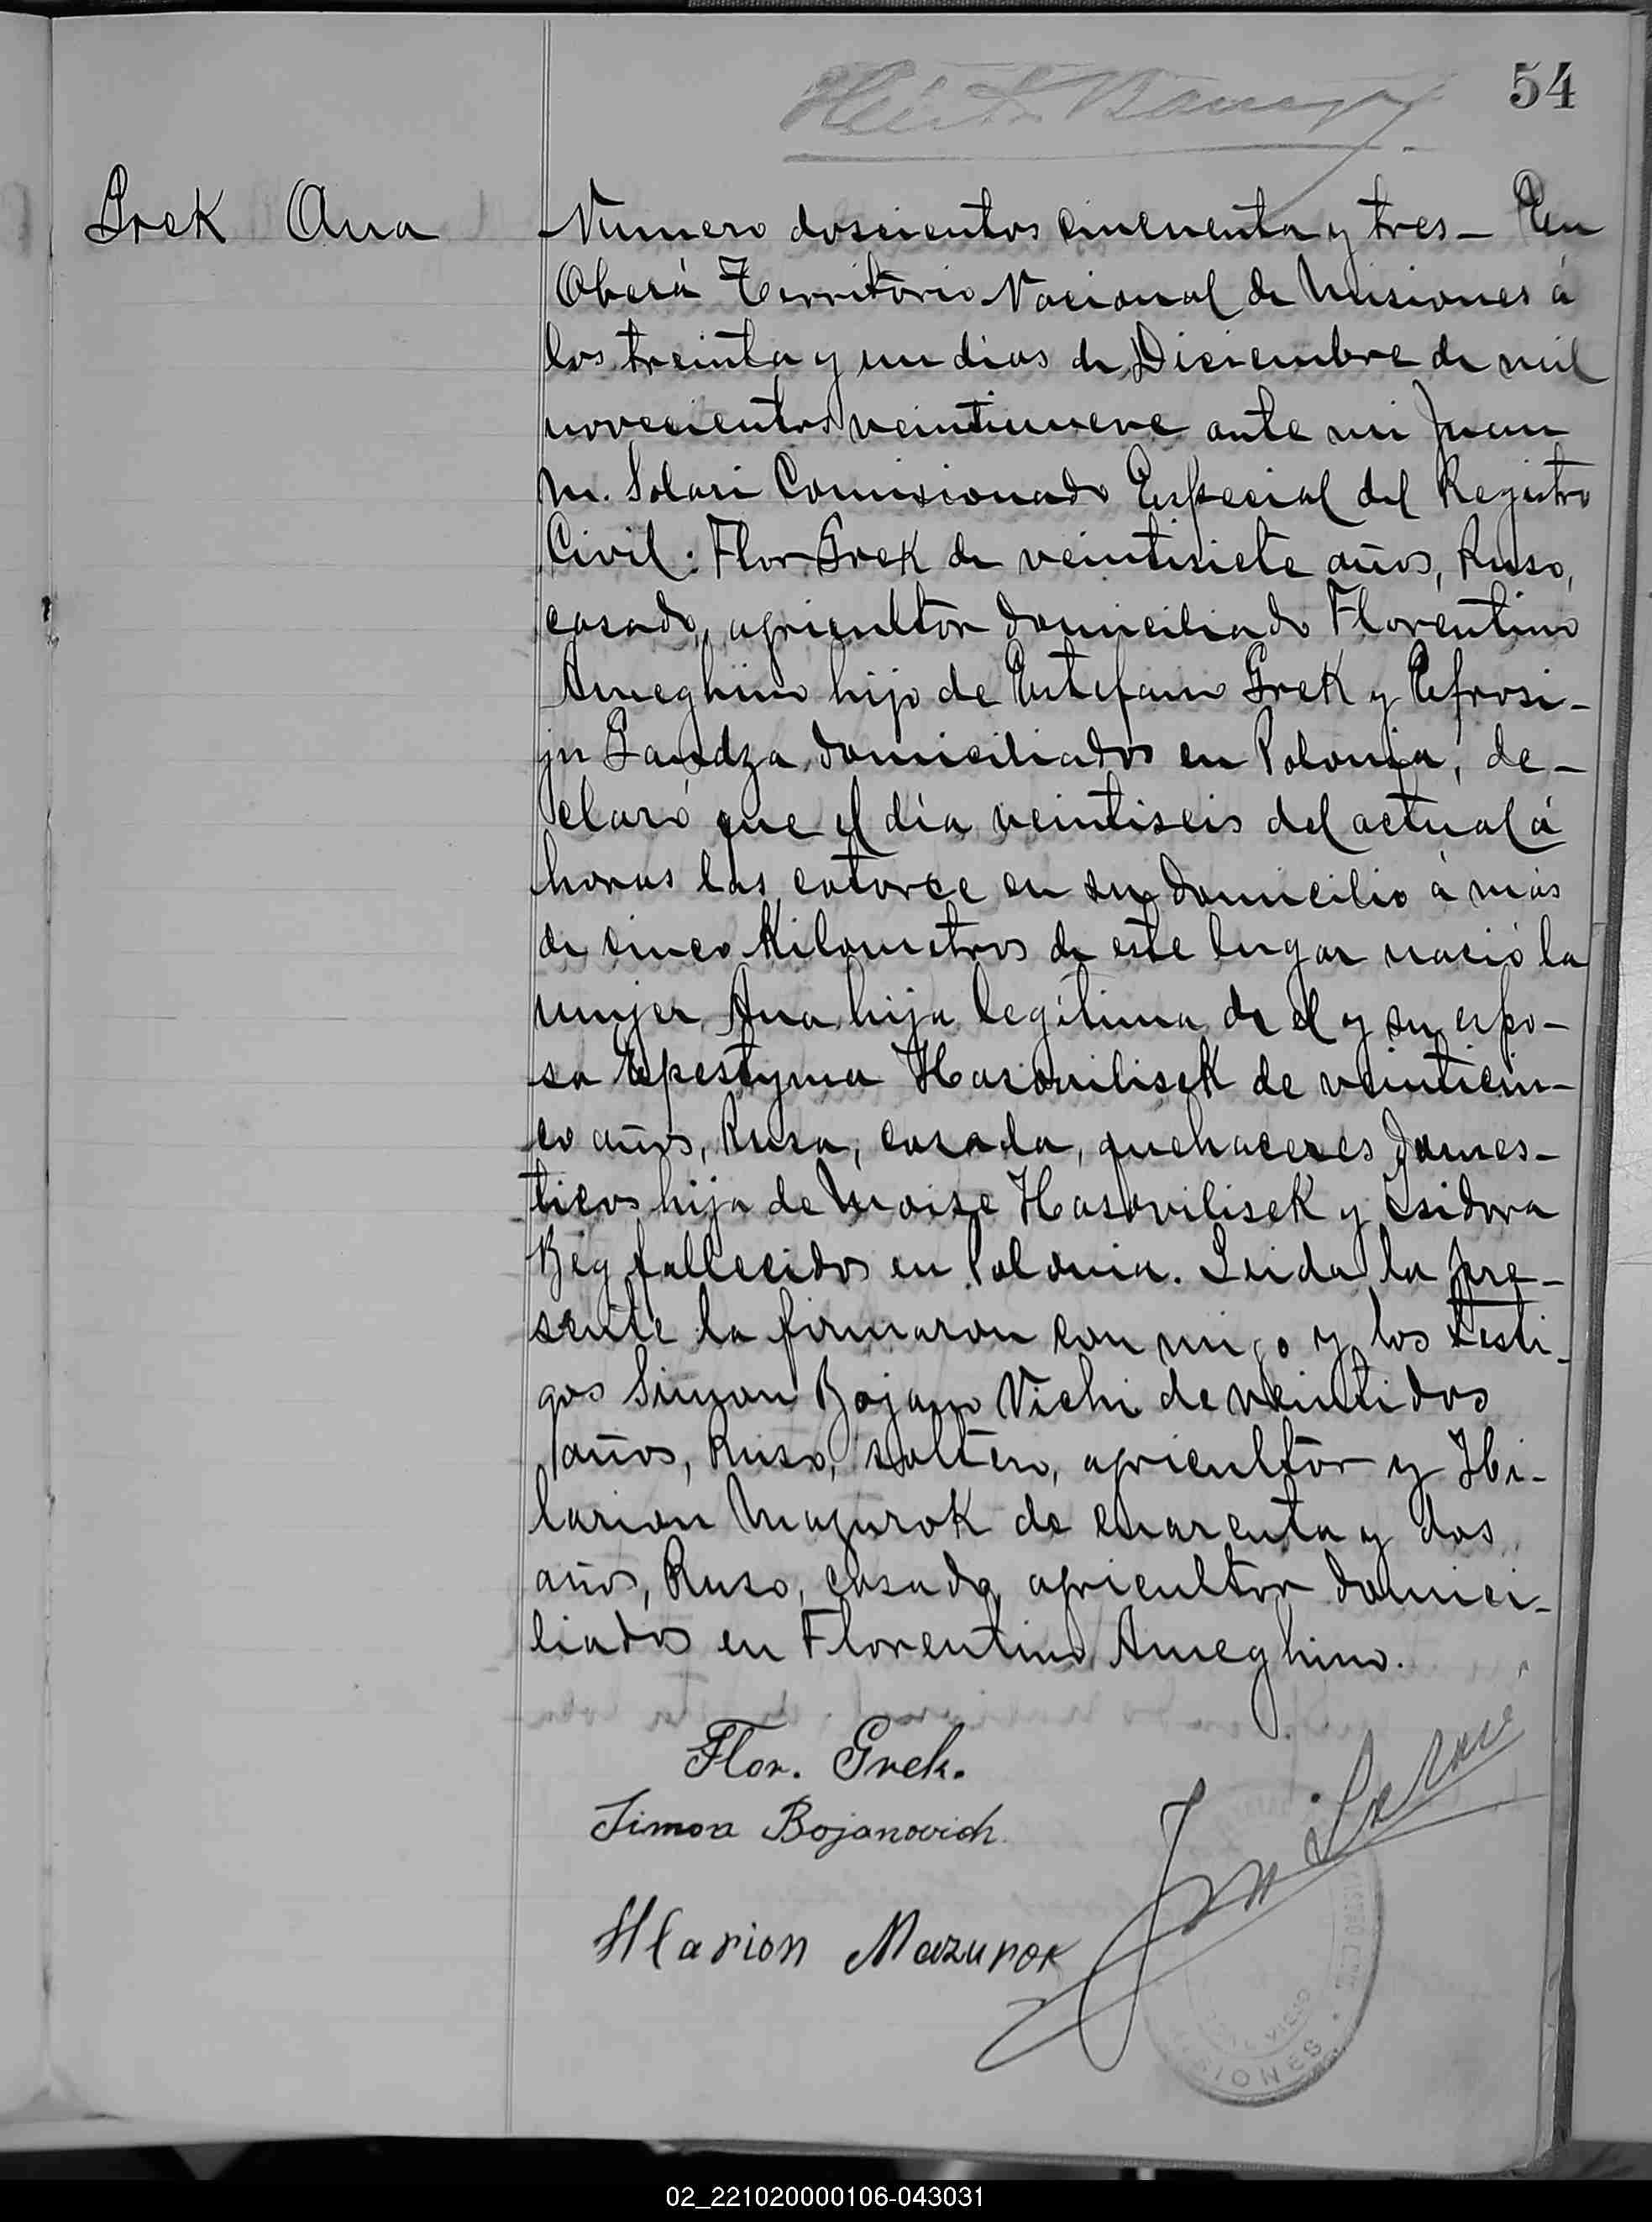 54
Grek Ana
Numero doscientos cincuenta y tres - En
Oberá Territorio Nacional de Misiones á
los treinta y un dias de Diciembre de mil
novecientos veintinueve ante mi Juan
M. Solari Comisionado Especial del Registro
Civil: Flor Grek de veintisiete años, Ruso,
casado, agricultor domiciliado Florentino
Ameghino hijo de Estefano Grek y Efrosi-
jn Gandza domiciliados en Polonia, de-
claró que el día veintiseis del actual á
horas las catorce en su domicilio á más
de cinco Kilometros de este lugar nació la
mujer Ana hija legítima de el y su espo-
sa Epestyma Hasovilisek de veinticin-
co años, Rusa, casada, quehaceres domes-
ticos hija de Moise Hasovilisek y Isidora
Beg fallecidos en Polonia. Leida la pre-
sente la firmaron con migo y los testi-
gos Simon Bojano Vichi de veintidos
años, Ruso, soltero, agricultor y Hi-
larion Mazurok de cuarenta y dos
años, Ruso, casado, agricultor domici-
liados en Florentino Ameghino.
Flor. Grek.
Simon Bojanovich
Ilarion Mazurok
MISIONES
02_221020000106-043031